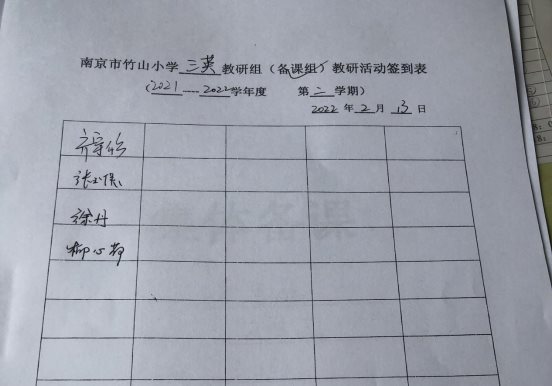 南京市竹山小学三英教研组（备课组）教研活动签到表
（2021——2022学年度 第二学期）
2022年2月13日
徐丹